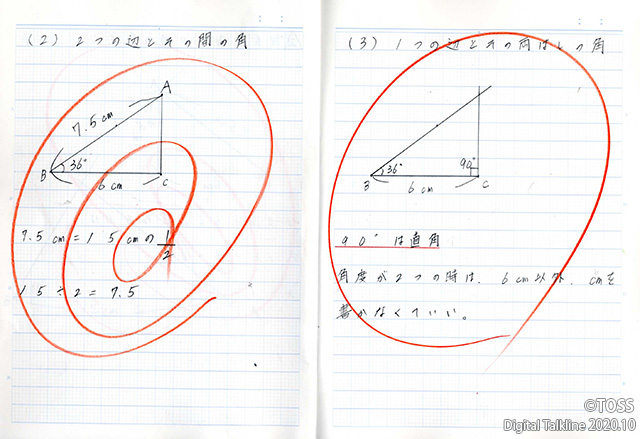 (2) 2つの辺とその間の角
A
7.5cm
36°
B
6cm
C
7.5cm=15cmの1/2
15÷2=7.5
(3) 1つの辺とその両はしの角
36°
90°
B
6cm
C
90°は直角
角度が2つの時は、6cm以外、cmを
書かなくていい。
©TOSS
Digital Talkline 2020.10